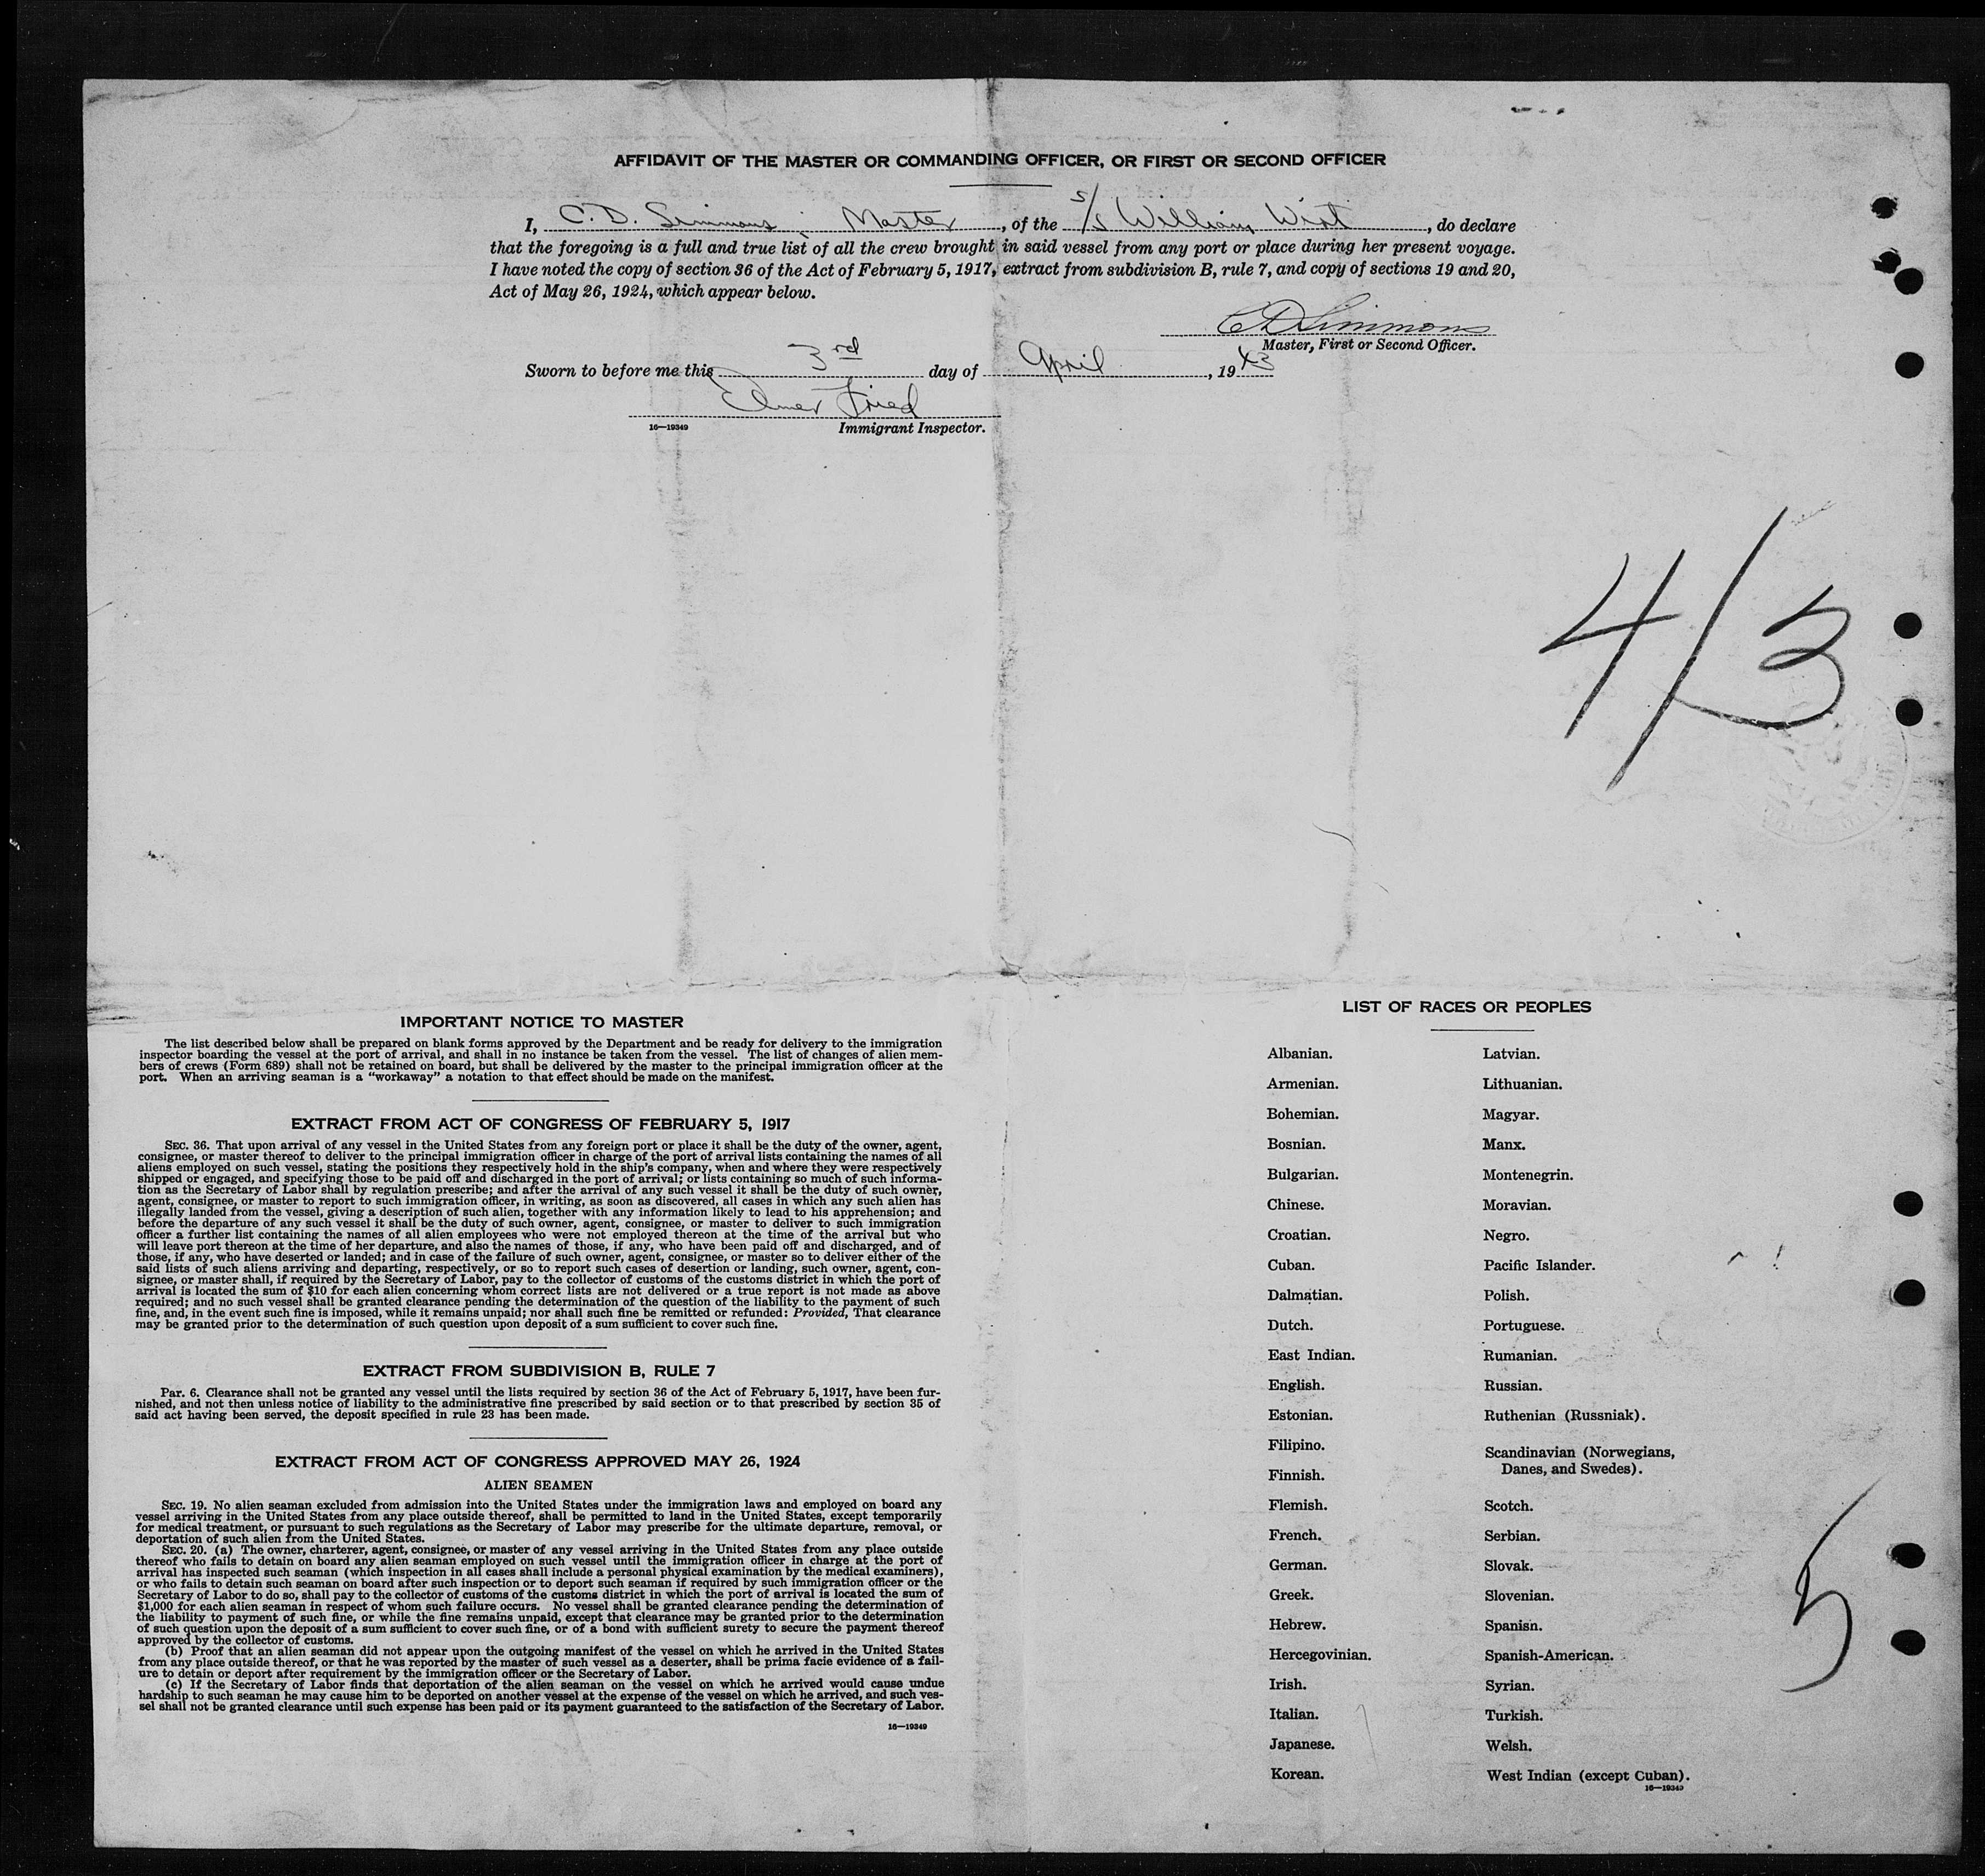 AFFIDAVIT OF THE MASTER OR COMMANDING OFFICER, OR FIRST OR SECOND OFFICER
I, C. D. Simmons, Master, of the S/S William Wirt, do declare
that the foregoing is a full and true list of all the crew brought in said vessel from any port or place during her present voyage.
I have noted the copy of section 36 of the Act of February 5, 1917, extract from subdivision B, rule 7, and copy of sections 19 and 20,
Act of May 26, 1924, which appear below.
CD Simmons
Master, First or Second Officer.
Sworn to before me this 3rd day of April, 1943
Elmer Fried
16—19349 Immigrant Inspector.
4/3
IMPORTANT NOTICE TO MASTER
The list described below shall be prepared on blank forms approved by the Department and be ready for delivery to the immigration
inspector boarding the vessel at the port of arrival, and shall in no instance be taken from the vessel. The list of changes of alien mem-
bers of crews (Form 689) shall not be retained on board, but shall be delivered by the master to the principal immigration officer at the
port. When an arriving seaman is a "workaway" a notation to that effect should be made on the manifest.
EXTRACT FROM ACT OF CONGRESS OF FEBRUARY 5, 1917
SEC. 36. That upon arrival of any vessel in the United States from any foreign port or place it shall be the duty of the owner, agent,
consignee, or master thereof to deliver to the principal immigration officer in charge of the port of arrival lists containing the names of all
aliens employed on such vessel, stating the positions they respectively hold in the ship's company, when and where they were respectively
shipped or engaged, and specifying those to be paid off and discharged in the port of arrival; or lists containing so much of such informa-
tion as the Secretary of Labor shall by regulation prescribe; and after the arrival of any such vessel it shall be the duty of such owner,
agent, consignee, or master to report to such immigration officer, in writing, as soon as discovered, all cases in which any such alien has
illegally landed from the vessel, giving a description of such alien, together with any information likely to lead to his apprehension; and
before the departure of any such vessel it shall be the duty of such owner, agent, consignee, or master to deliver to such immigration
officer a further list containing the names of all alien employees who were not employed thereon at the time of the arrival but who
will leave port thereon at the time of her departure, and also the names of those, if any, who have been paid off and discharged, and of
those, if any, who have deserted or landed; and in case of the failure of such owner, agent, consignee, or master so to deliver either of the
said lists of such aliens arriving and departing, respectively, or so to report such cases of desertion or landing, such owner, agent, con-
signee, or master shall, if required by the Secretary of Labor, pay to the collector of customs of the customs district in which the port of
arrival is located the sum of $10 for each alien concerning whom correct lists are not delivered or a true report is not made as above
required; and no such vessel shall be granted clearance pending the determination of the question of the liability to the payment of such
fine, and, in the event such fine is imposed, while it remains unpaid; nor shall such fine be remitted or refunded: Provided, That clearance
may be granted prior to the determination of such question upon deposit of a sum sufficient to cover such fine.
EXTRACT FROM SUBDIVISION B, RULE 7
Par. 6. Clearance shall not be granted any vessel until the lists required by section 36 of the Act of February 5, 1917, have been fur-
nished, and not then unless notice of liability to the administrative fine prescribed by said section or to that prescribed by section 35 of
said act having been served, the deposit specified in rule 23 has been made.
EXTRACT FROM ACT OF CONGRESS APPROVED MAY 26, 1924
ALIEN SEAMEN
SEC. 19. No alien seaman excluded from admission into the United States under the immigration laws and employed on board any
vessel arriving in the United States from any place outside thereof, shall be permitted to land in the United States, except temporarily
for medical treatment, or pursuant to such regulations as the Secretary of Labor may prescribe for the ultimate departure, removal, or
deportation of such alien from the United States.
SEC. 20. (a) The owner, charterer, agent, consignee, or master of any vessel arriving in the United States from any place outside
thereof who fails to detain on board any alien seaman employed on such vessel until the immigration officer in charge at the port of
arrival has inspected such seaman (which inspection in all cases shall include a personal physical examination by the medical examiners),
or who fails to detain such seaman on board after such inspection or to deport such seaman if required by such immigration officer or the
Secretary of Labor to do so, shall pay to the collector of customs of the customs district in which the port of arrival is located the sum of
$1,000 for each alien seaman in respect of whom such failure occurs. No vessel shall be granted clearance pending the determination of
the liability to payment of such fine, or while the fine remains unpaid, except that clearance may be granted prior to the determination
of such question upon the deposit of a sum sufficient to cover such fine, or of a bond with sufficient surety to secure the payment thereof
approved by the collector of customs.
(b) Proof that an alien seaman did not appear upon the outgoing manifest of the vessel on which he arrived in the United States
from any place outside thereof, or that he was reported by the master of such vessel as a deserter, shall be prima facie evidence of a fail-
ure to detain or deport after requirement by the immigration officer or the Secretary of Labor.
(c) If the Secretary of Labor finds that deportation of the alien seaman on the vessel on which he arrived would cause undue
hardship to such seaman he may cause him to be deported on another vessel at the expense of the vessel on which he arrived, and such ves-
sel shall not be granted clearance until such expense has been paid or its payment guaranteed to the satisfaction of the Secretary of Labor.
16—19349
LIST OF RACES OR PEOPLES
Albanian.
Armenian.
Bohemian.
Bosnian.
Bulgarian.
Chinese.
Croatian.
Cuban.
Dalmatian.
Dutch.
East Indian.
English.
Estonian.
Filipino.
Finnish.
Flemish.
French.
German.
Greek.
Hebrew.
Hercegovinian.
Irish.
Italian.
Japanese.
Korean.
Latvian.
Lithuanian.
Magyar.
Manx.
Montenegrin.
Moravian.
Negro.
Pacific Islander.
Polish.
Portuguese.
Rumanian.
Russian.
Ruthenian (Russniak).
Scandinavian (Norwegians,
Danes, and Swedes).
Scotch.
Serbian.
Slovak.
Slovenian.
Spanish.
Spanish-American.
Syrian.
Turkish.
Welsh.
West Indian (except Cuban).
16—19349
5